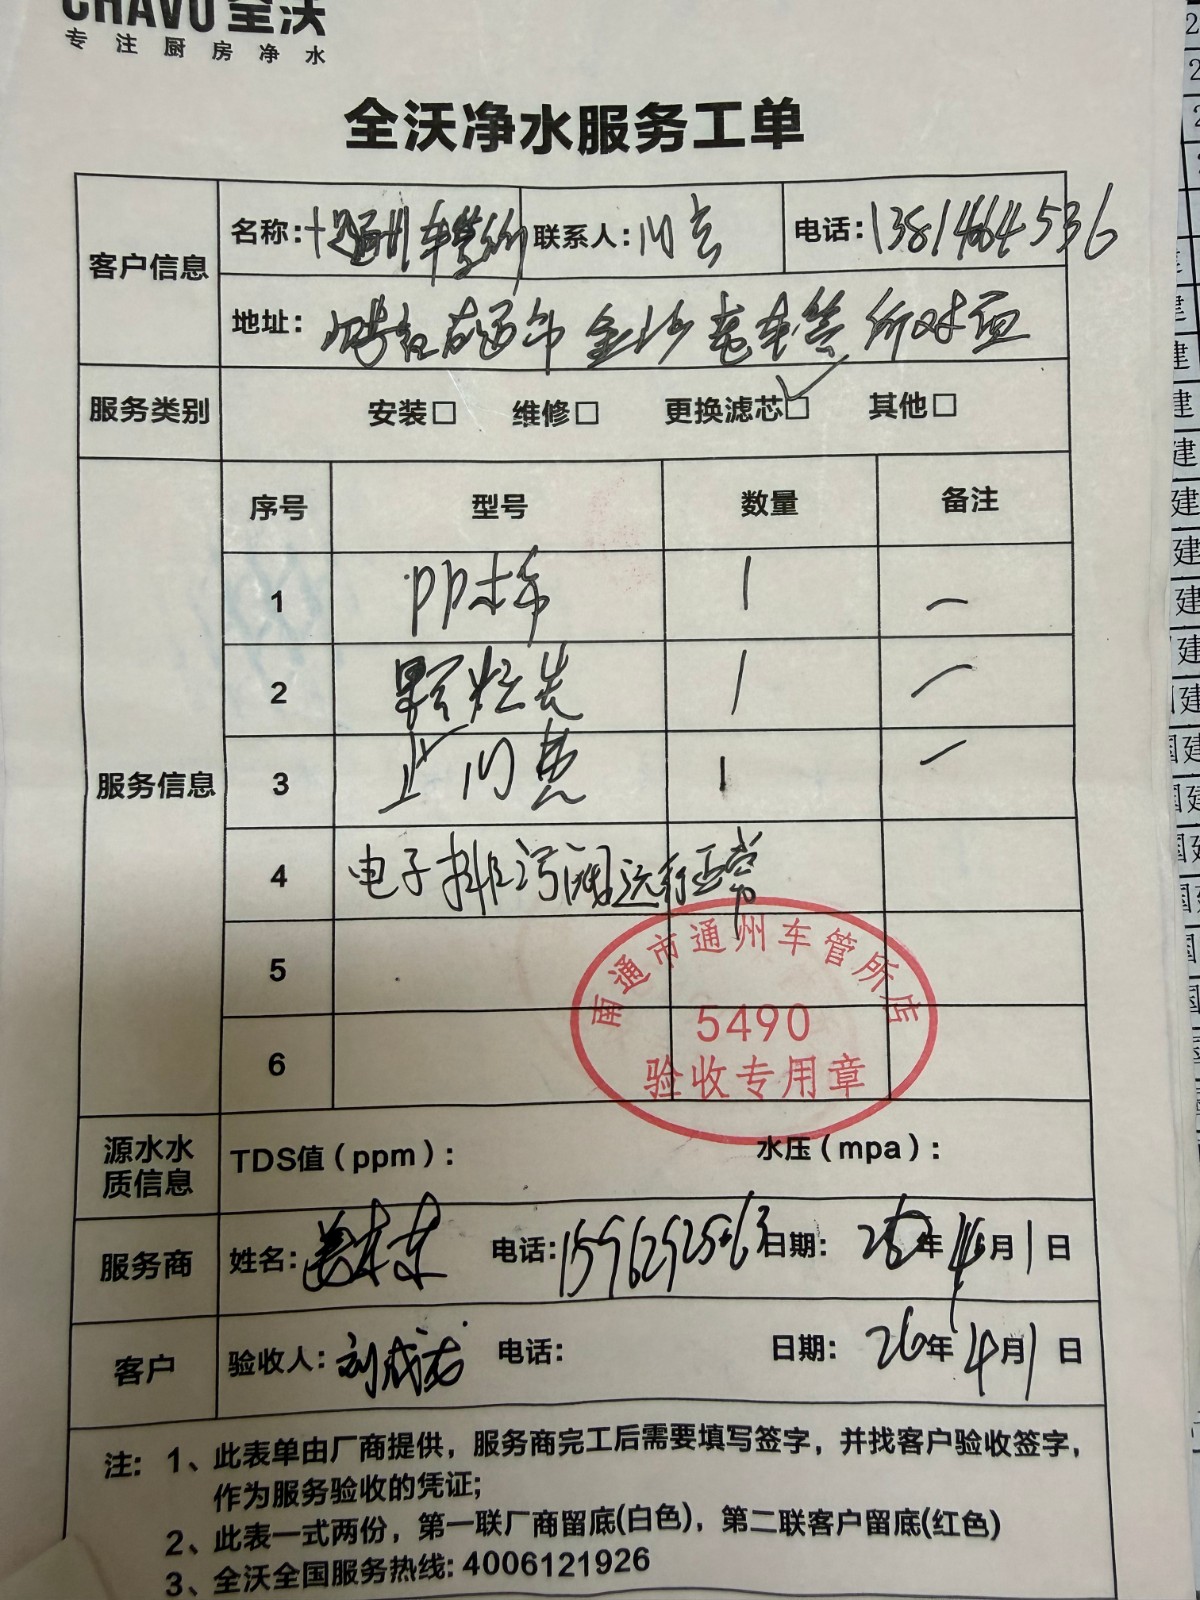 CHAVO 全沃
专注厨房净水
全沃净水服务工单
客户信息 名称: 通州车管所 联系人: 电话:
地址: 车管所对面
服务类别 安装□ 维修□ 更换滤芯☑ 其他□
服务信息 序号 型号 数量 备注
1 PP棉 1 一
2 颗粒炭 1 一
3 上门费 1 一
4 电子排污阀运行正常
5
6
南通市通州车管所店
5490
验收专用章
源水水质信息 TDS值(ppm): 水压(mpa):
服务商 姓名: 电话: 日期: 26年4月1日
客户 验收人: 电话: 日期: 26年4月1日
注: 1、此表单由厂商提供，服务商完工后需要填写签字，并找客户验收签字，
作为服务验收的凭证;
2、此表一式两份，第一联厂商留底(白色)，第二联客户留底(红色)
3、全沃全国服务热线: 4006121926